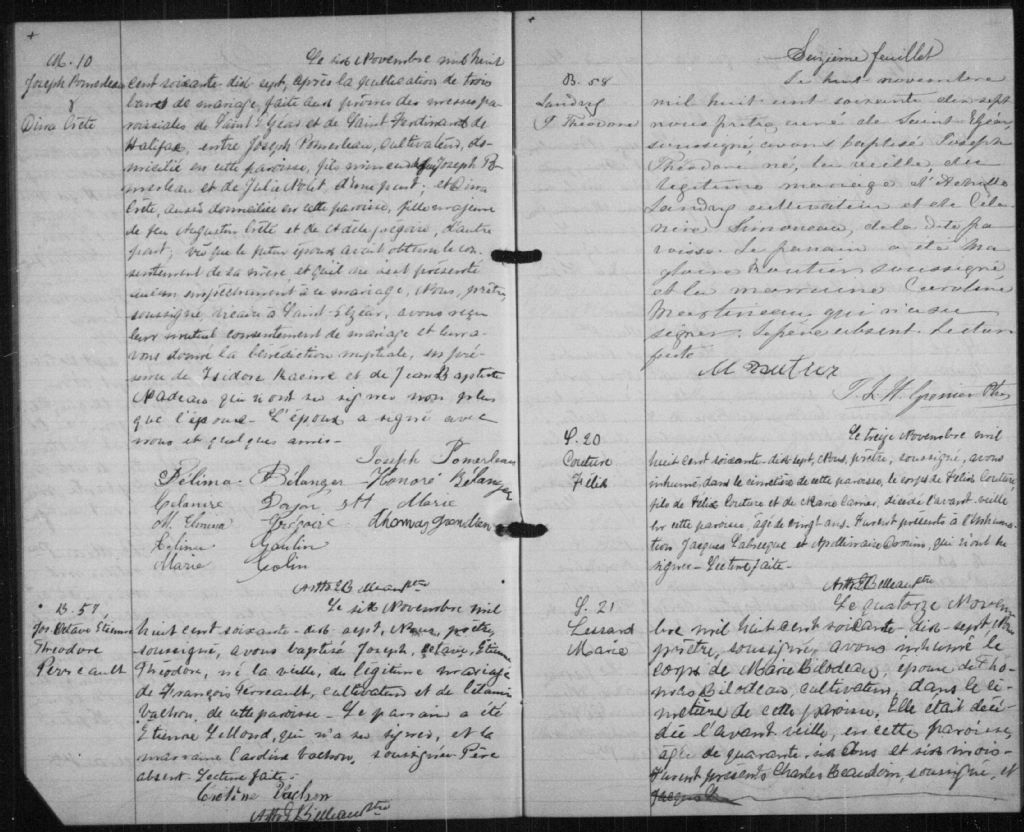 M. 10
Joseph Pomerleau
&
Dina Crête
Le six Novembre mil huit
cent soixante dix sept, après la publication de trois
bans de mariage, faite aux prônes des messes pa-
roissiales de Saint Elzéar et de Saint Ferdinand de
Halifax, entre Joseph Pomerleau, cultivateur, do-
micilié en cette paroisse, fils mineur de Joseph Po-
merleau et de Julie Nolet d'une part; et Dina
Crête, aussi domiciliée en cette paroisse, fille majeure
de feu Augustin Crête et de Adèle Grégoire, d'autre
part; vu que le futur époux avait obtenu le con-
sentement de sa mère et qu'il ne s'est présenté
aucun empêchement à ce mariage, Nous, prêtre,
soussigné, vicaire à Saint Elzéar, avons reçu
leur mutuel consentement de mariage et leur a-
vons donné la bénédiction nuptiale, en pré-
sence de Isidore Racine et de Jean Baptiste
Nadeau qui n'ont su signer non plus
que l'épouse. L'époux a signé avec
nous et quelques amis.
Joseph Pomerleau
Bélanger Honoré Bélanger
Celanire Marie
M. Grégoire Thomas Grondin
Poulin
Marie Colin
Ptre
B. 57
Jos. Octave Etienne
Théodore
Perreault
Le six Novembre mil
huit cent soixante-dix sept, Nous, prêtre,
soussigné, avons baptisé Joseph, Octave, Etienne
Théodore, né la veille, du légitime mariage
de François Perreault, cultivateur et de
Vachon, de cette paroisse. Le parrain a été
Etienne qui n'a su signer, et la
marraine Caroline Vachon, soussignée Père
absent. Lecture faite.
Vachon
Ptre
Seizième feuillet
B. 58
Landry
J. Théodore
Le huit novembre
mil huit cent soixante dix sept
nous prêtre, curé de Saint Elzéar,
soussigné, avons baptisé Joseph
Théodore né, la veille, du
légitime mariage d'Achille
Landry cultivateur et de Céla-
nire Simoneau, de la dite pa-
roisse. Le parrain a été Ma-
gloire Routier soussigné
et la marraine Caroline
Martineau qui n'a su
signer. Le père absent. Lecture
faite
M Routier
J. L. H. Grenier Ptre
S. 20
Couture
Félix
Le treize Novembre mil
huit cent soixante-dix sept, Nous, prêtre, soussigné, avons
inhumé, dans le cimetière de cette paroisse, le corps de Félix Couture,
fils de Félix Couture et de Marie Carrier, décédé l'avant-veille
en cette paroisse, âgé de vingt ans. Furent présents à l'inhuma-
tion Jacques Labrecque et Apollinaire Drouin, qui n'ont su
signer. Lecture faite.
Ptre
S. 21
Lessard
Marie
Le quatorze Novem-
bre mil huit cent soixante-dix-sept, Nous
prêtre, soussigné, avons inhumé le
corps de Marie Bilodeau, épouse de Tho-
mas Bilodeau, cultivateur, dans le ci-
metière de cette paroisse. Elle était décé-
dée l'avant veille, en cette paroisse,
âgée de quarante six ans et six mois.
Furent présents Charles Beaudoin, soussigné, et